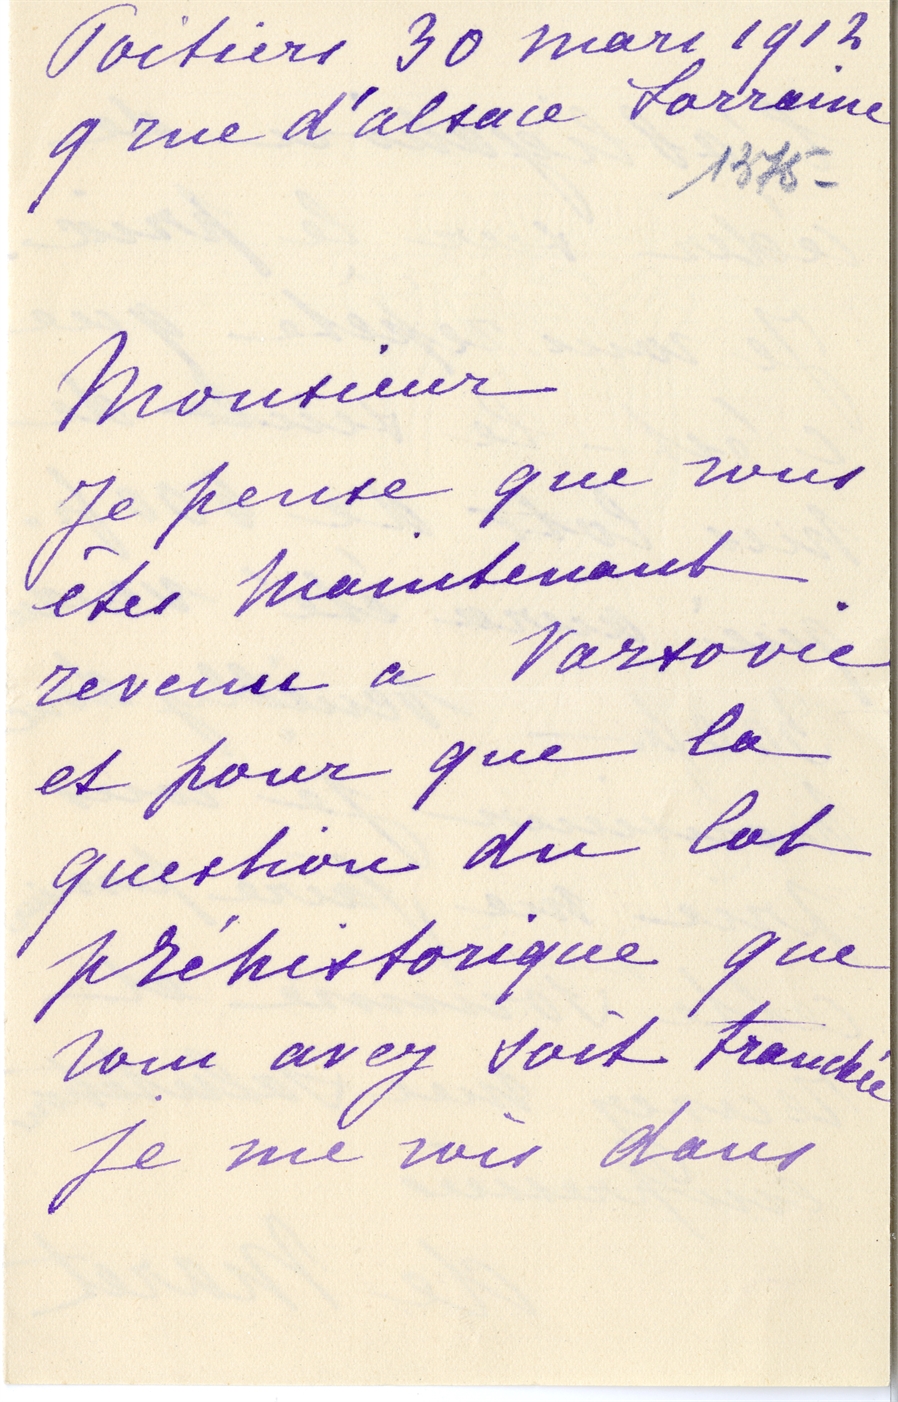 Poitiers 30 mars 1912
9 rue d'alsace Lorraine
1375-
Monsieur
Je pense que vous
êtes maintenant
revenu a Varsovie
et pour que la
question du lot
préhistorique que
vous avez soit tranchée
je me vois dans